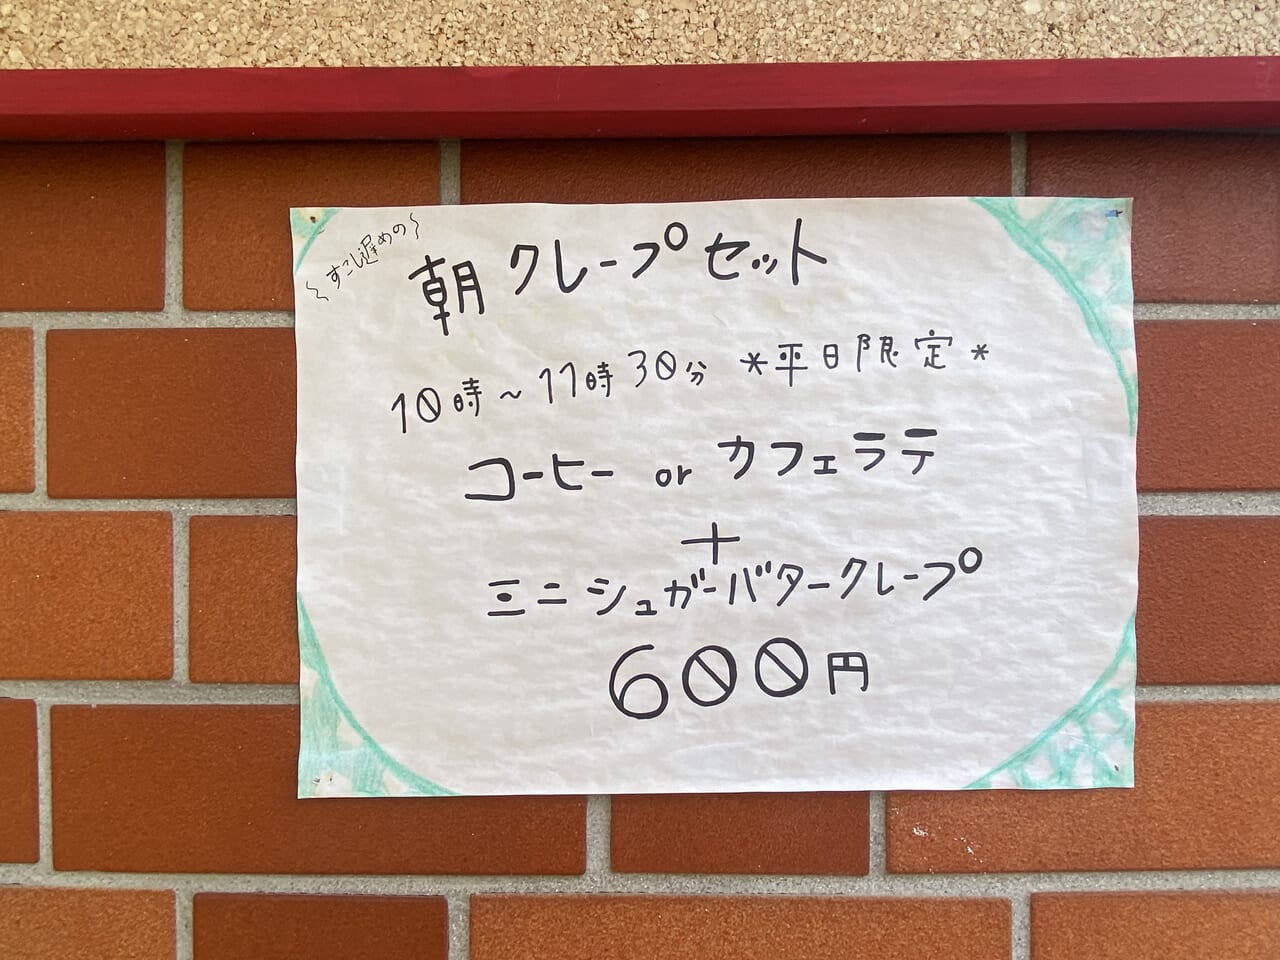 ～すこし遅めの～
朝クレープセット
10時～11時30分 *平日限定*
コーヒー or カフェラテ
+
ミニシュガーバタークレープ
600円